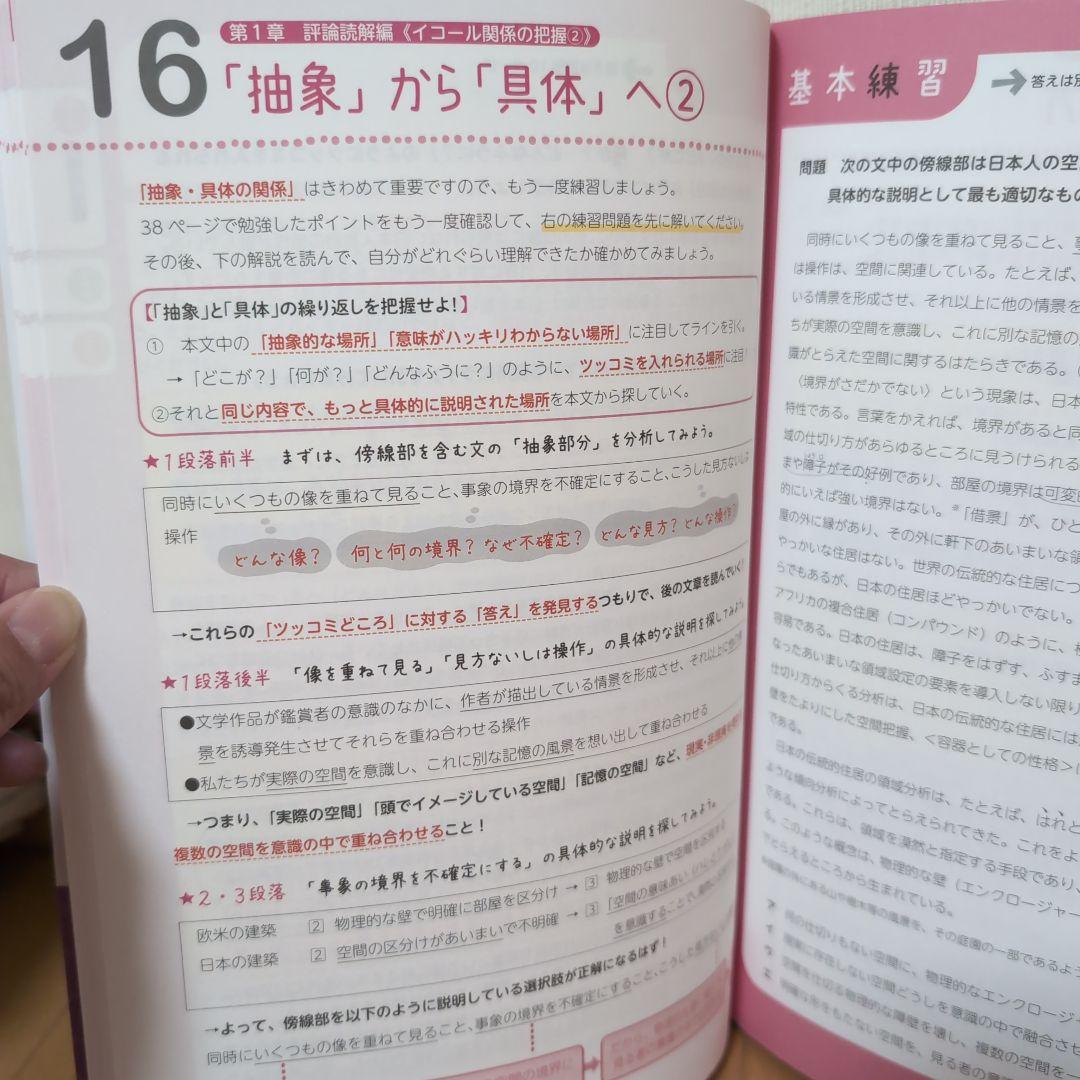 16
第1章 評論読解編《イコール関係の把握②》
「抽象」から「具体」へ②
「抽象・具体の関係」はきわめて重要ですので、もう一度練習しましょう。
38ページで勉強したポイントをもう一度確認して、右の練習問題を先に解いてください。
その後、下の解説を読んで、自分がどれぐらい理解できたか確かめてみましょう。
【「抽象」と「具体」の繰り返しを把握せよ!】
① 本文中の「抽象的な場所」「意味がハッキリわからない場所」に注目してラインを引く。
→「どこが?」「何が?」「どんなふうに?」のように、ツッコミを入れられる場所に注目!
②それと同じ内容で、もっと具体的に説明された場所を本文から探していく。
★1段落前半 まずは、傍線部を含む文の「抽象部分」を分析してみよう。
同時にいくつもの像を重ねて見ること、事象の境界を不確定にすること、こうした見方ないしは
操作
どんな像?
何と何の境界? なぜ不確定?
どんな見方? どんな操作?
→これらの「ツッコミどころ」に対する「答え」を発見するつもりで、後の文章を読んでいく!
★1段落後半 「像を重ねて見る」「見方ないしは操作」の具体的な説明を探してみよう。
●文学作品が鑑賞者の意識のなかに、作者が描出している情景を形成させ、それ以上に他の情
景を誘導発生させてそれらを重ね合わせる操作
●私たちが実際の空間を意識し、これに別な記憶の風景を想い出して重ね合わせる
→つまり、「実際の空間」「頭でイメージしている空間」「記憶の空間」など、現実・非現実を問わず
複数の空間を意識の中で重ね合わせること!
★2・3段落 「事象の境界を不確定にする」の具体的な説明を探してみよう。
欧米の建築 2 物理的な壁で明確に部屋を区分け → 3 物理的な壁で空間を
日本の建築 2 空間の区分けがあいまいで不明確 → 3 「空間の意味あい
を意識することで、
→よって、傍線部を以下のように説明している選択肢が正解になるはず!
同時にいくつもの像を重ねて見ること、事象の境界を不確定にすること、こうした
空間の境界に
基本練習
→答えは別
問題 次の文中の傍線部は日本人の空
具体的な説明として最も適切なもの
同時にいくつもの像を重ねて見ること、事
は操作は、空間に関連している。たとえば、
いる情景を形成させ、それ以上に他の情景を
ちが実際の空間を意識し、これに別な記憶の
識がとらえた空間に関するはたらきである。
〈境界がさだかでない〉という現象は、日本
特性である。言葉をかえれば、境界があると同
域の仕切り方があらゆるところに見うけられる
まや障子がその好例であり、部屋の境界は可変
的にいえば強い境界はない。*「借景」が、ひと
屋の外に縁があり、その外に軒下のあいまいな領
やっかいな住居はない。世界の伝統的な住居につ
らでもあるが、日本の住居ほどやっかいでない。
アフリカの複合住居(コンパウンド)のように、
容易である。日本の住居は、障子をはずす、ふすま
なったあいまいな領域設定の要素を導入しない限り
仕切り方からくる分析は、日本の伝統的な住居には
壁をたよりにした空間把握、<容器としての性格>
である。
日本の伝統的住居の領域分析は、たとえば、はれと
ような傾向分析によってとらえられてきた。これをよ
る。これらは、領域を漠然と指定する手段であり、
る。このような概念は、物理的な壁(エンクロージャー
でとらえるところから生まれている。
ア 何の仕切りもない空間に、物理的なエンクロージ
イ 現実に存在しない空間どうしを意識の中で融合させ
ウ 空間を仕切る物理的な障壁を壊し、複数の空間を一
エ 明確な形をもたない空間を、見る者の意